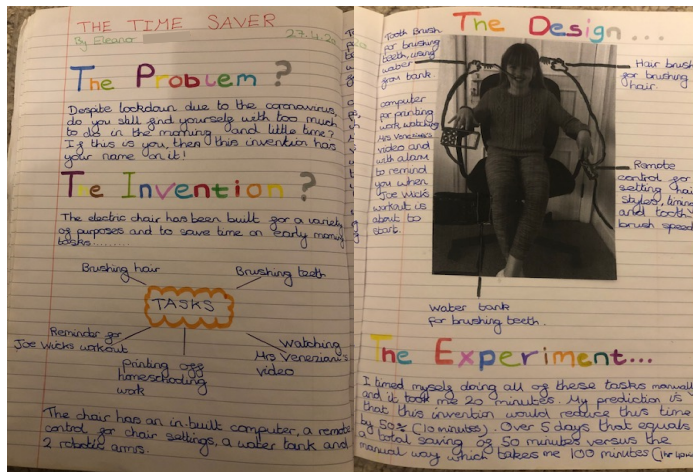 THE TIME SAVER
By Eleanor
27.4.20
The Problem ?
Despite lockdown due to the coronavirus,
do you still find yourself with too much
to do in the morning and little time?
If this is you, then this invention has
your name on it!
The Invention ?
The electric chair has been built for a variety
of purposes and to save time on early morning
tasks..........
Brushing hair
Brushing teeth
TASKS
Reminder for
Joe Wicks workout
printing off
homeschooling
work
Watching
Mrs Veneziani's
video
The chair has an in-built computer, a remote
control for chair settings, a water tank and
2 robotic arms.
The Design...
Tooth Brush
for brushing
teeth, using
water
from tank
Hair brush
for brushing
hair.
computer
for printing
work, watching
Mrs Veneziani's
video and
with alarm
to remind
you when
Joe Wicks
workout is
about to
start.
Remote
control for
setting hair
styles, timing
and tooth
brush speed
Water tank
for brushing teeth.
The Experiment...
I timed myself doing all of these tasks manually
and it took me 20 minutes. My prediction is
that this invention would reduce this time
by 50% (10 minutes). Over 5 days that equals
a total saving of 50 minutes versus the
manual way which takes me 100 minutes (1hr